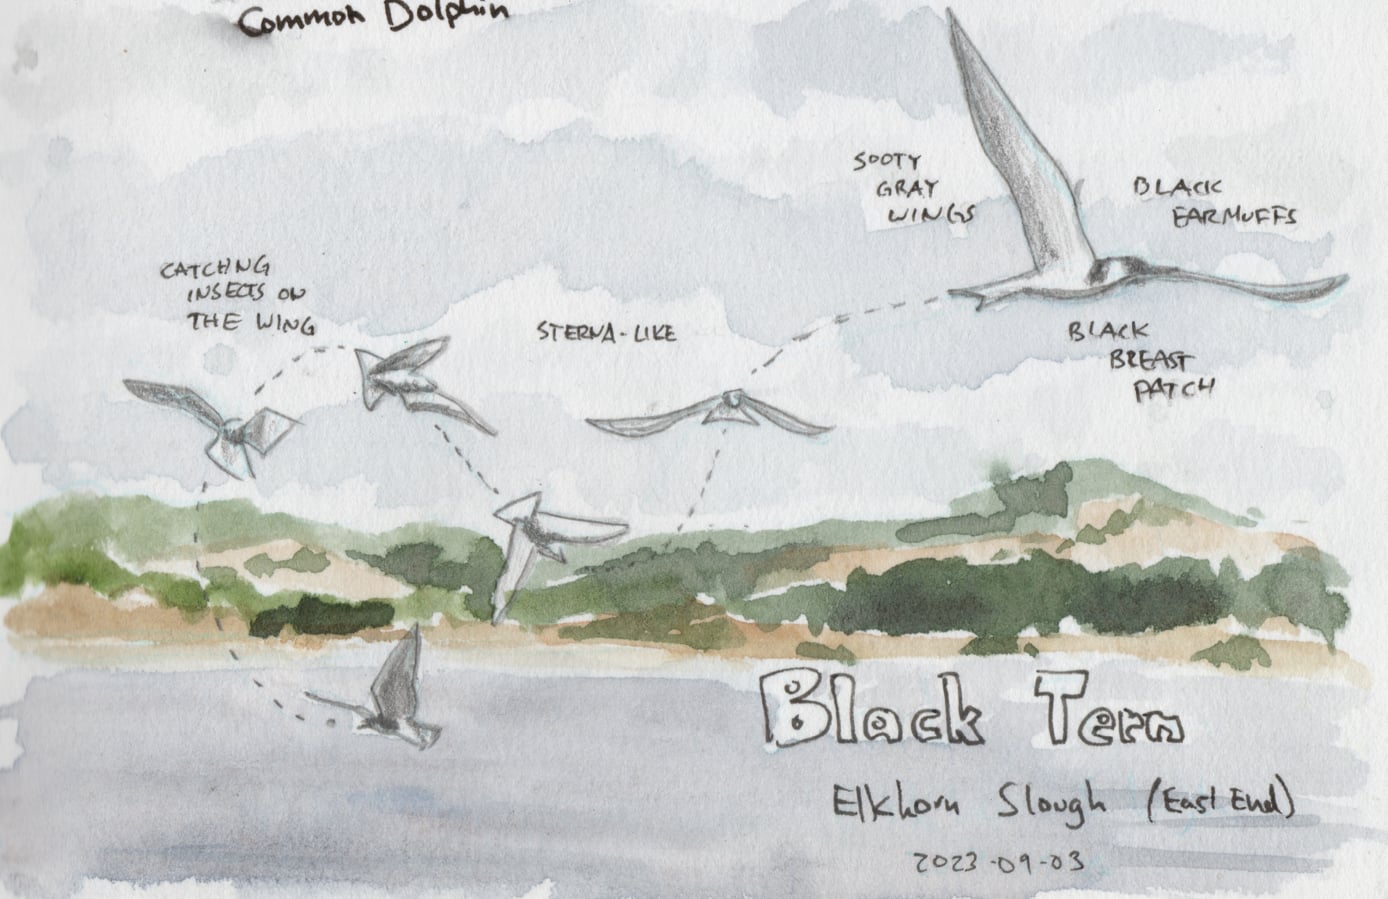 Common Dolphin
SOOTY
GRAY
WINGS
BLACK
EARMUFFS
CATCHNG
INSECTS ON
THE WING
STERNA-LIKE
BLACK
BREAST
PATCH
Black Tern
Elkhorn Slough (East End)
2023-09-03